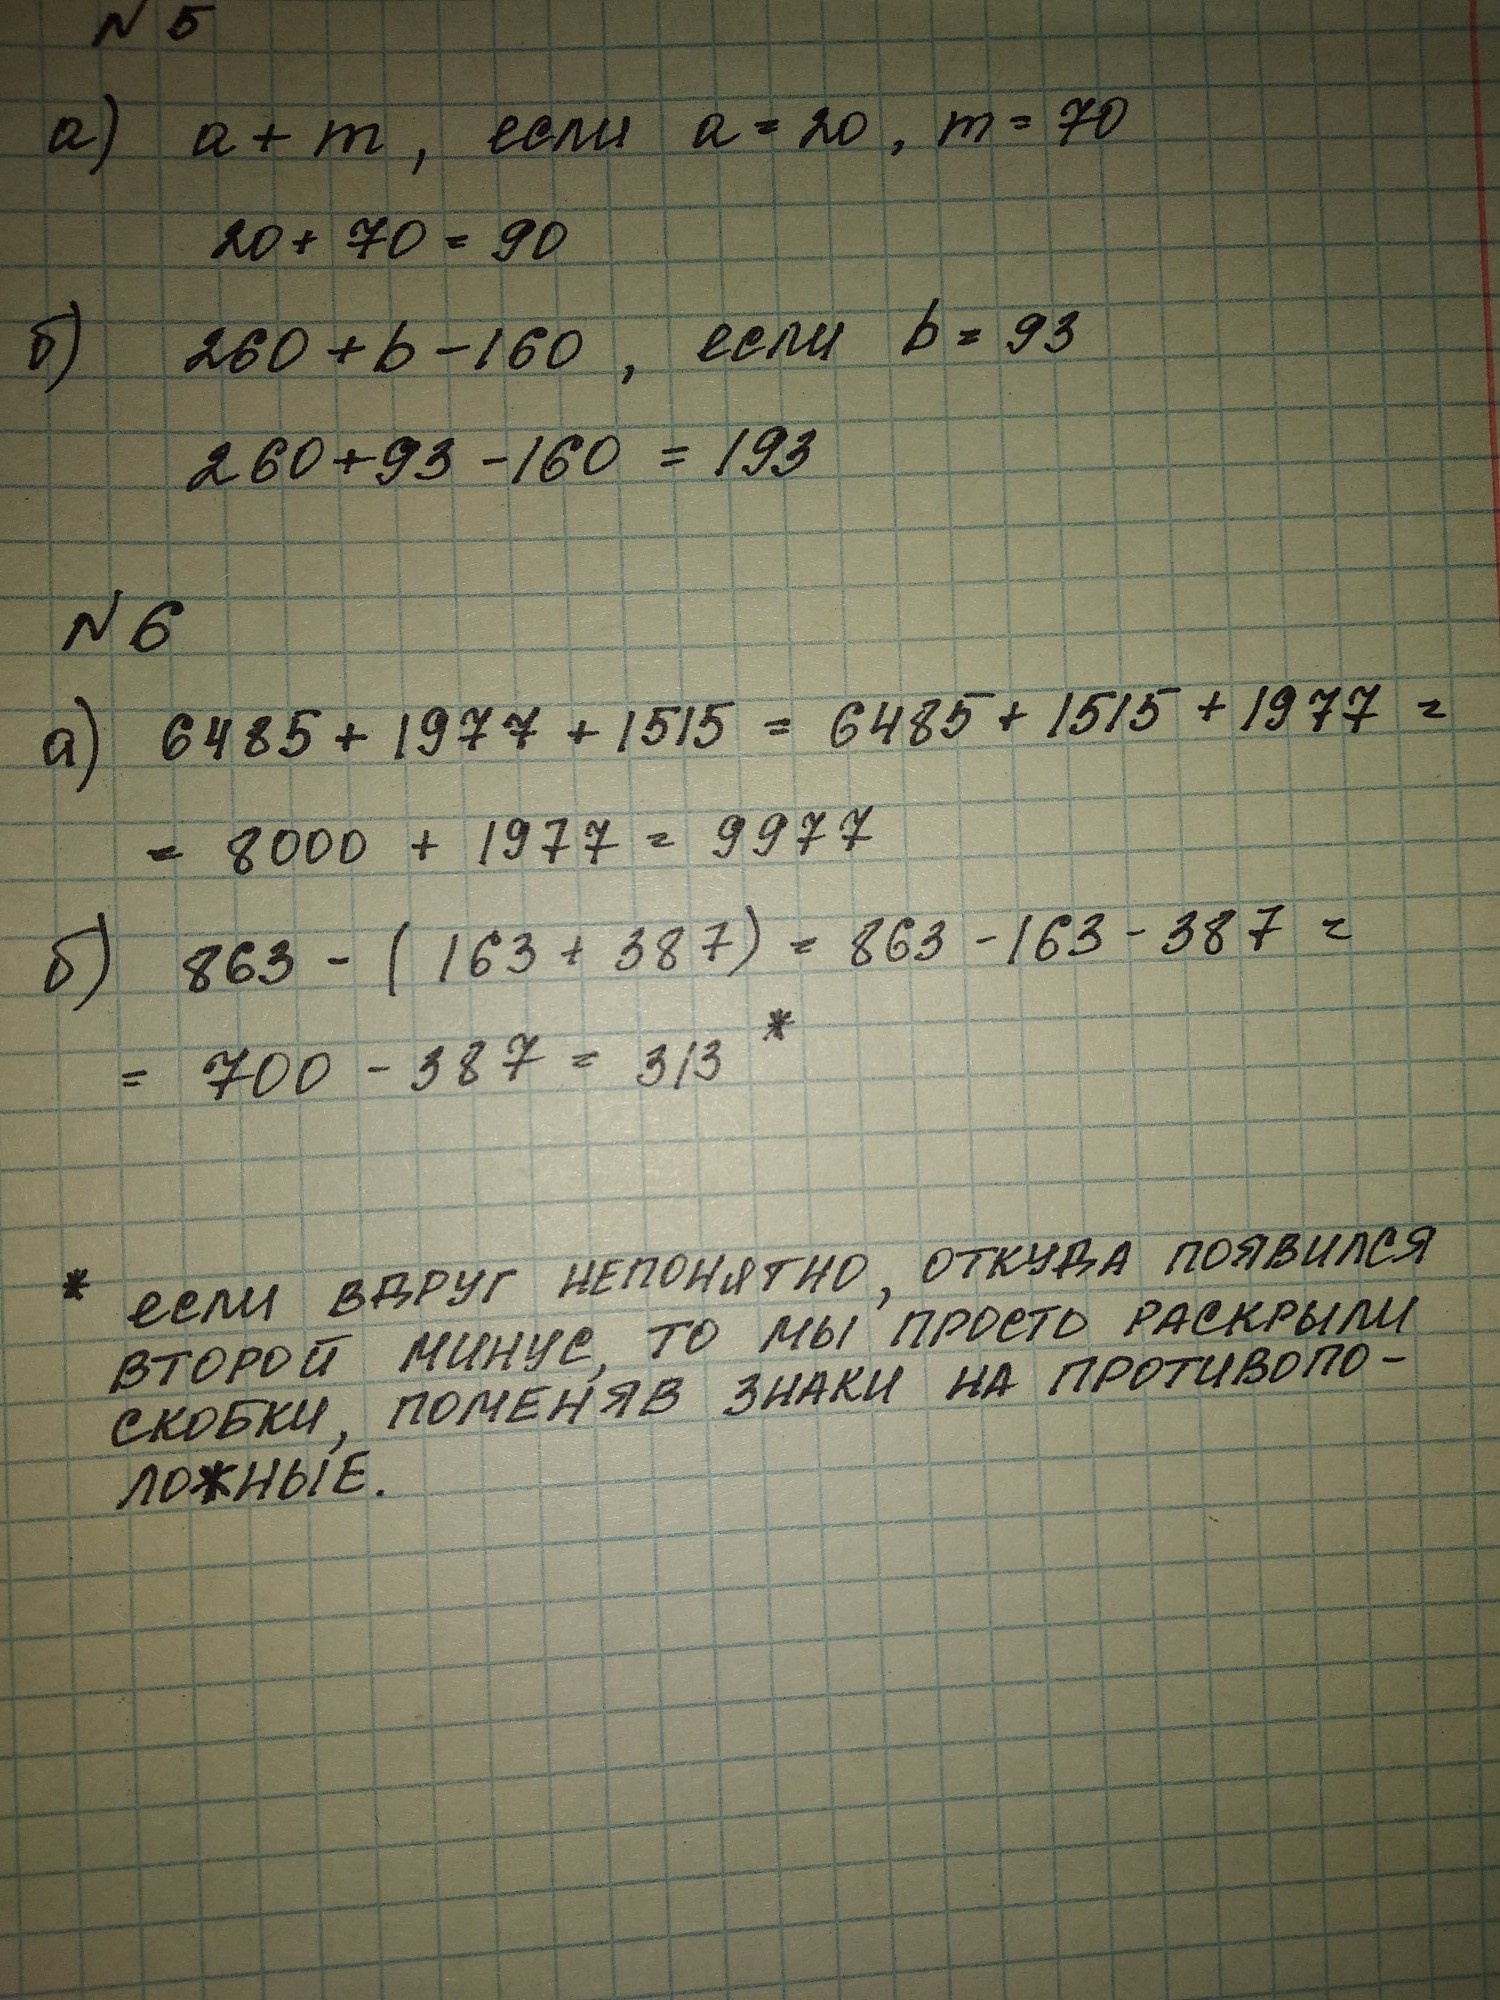 N 5
а) a + m, если a = 20, m = 70
20 + 70 = 90
б) 260 + b - 160, если b = 93
260 + 93 - 160 = 193
N 6
а) 6485 + 1977 + 1515 = 6485 + 1515 + 1977 =
= 8000 + 1977 = 9977
б) 863 - (163 + 387) = 863 - 163 - 387 =
= 700 - 387 = 313 *
* если вдруг непонятно, откуда появился
второй минус, то мы просто раскрыли
скобки, поменяв знаки на противопо-
ложные.